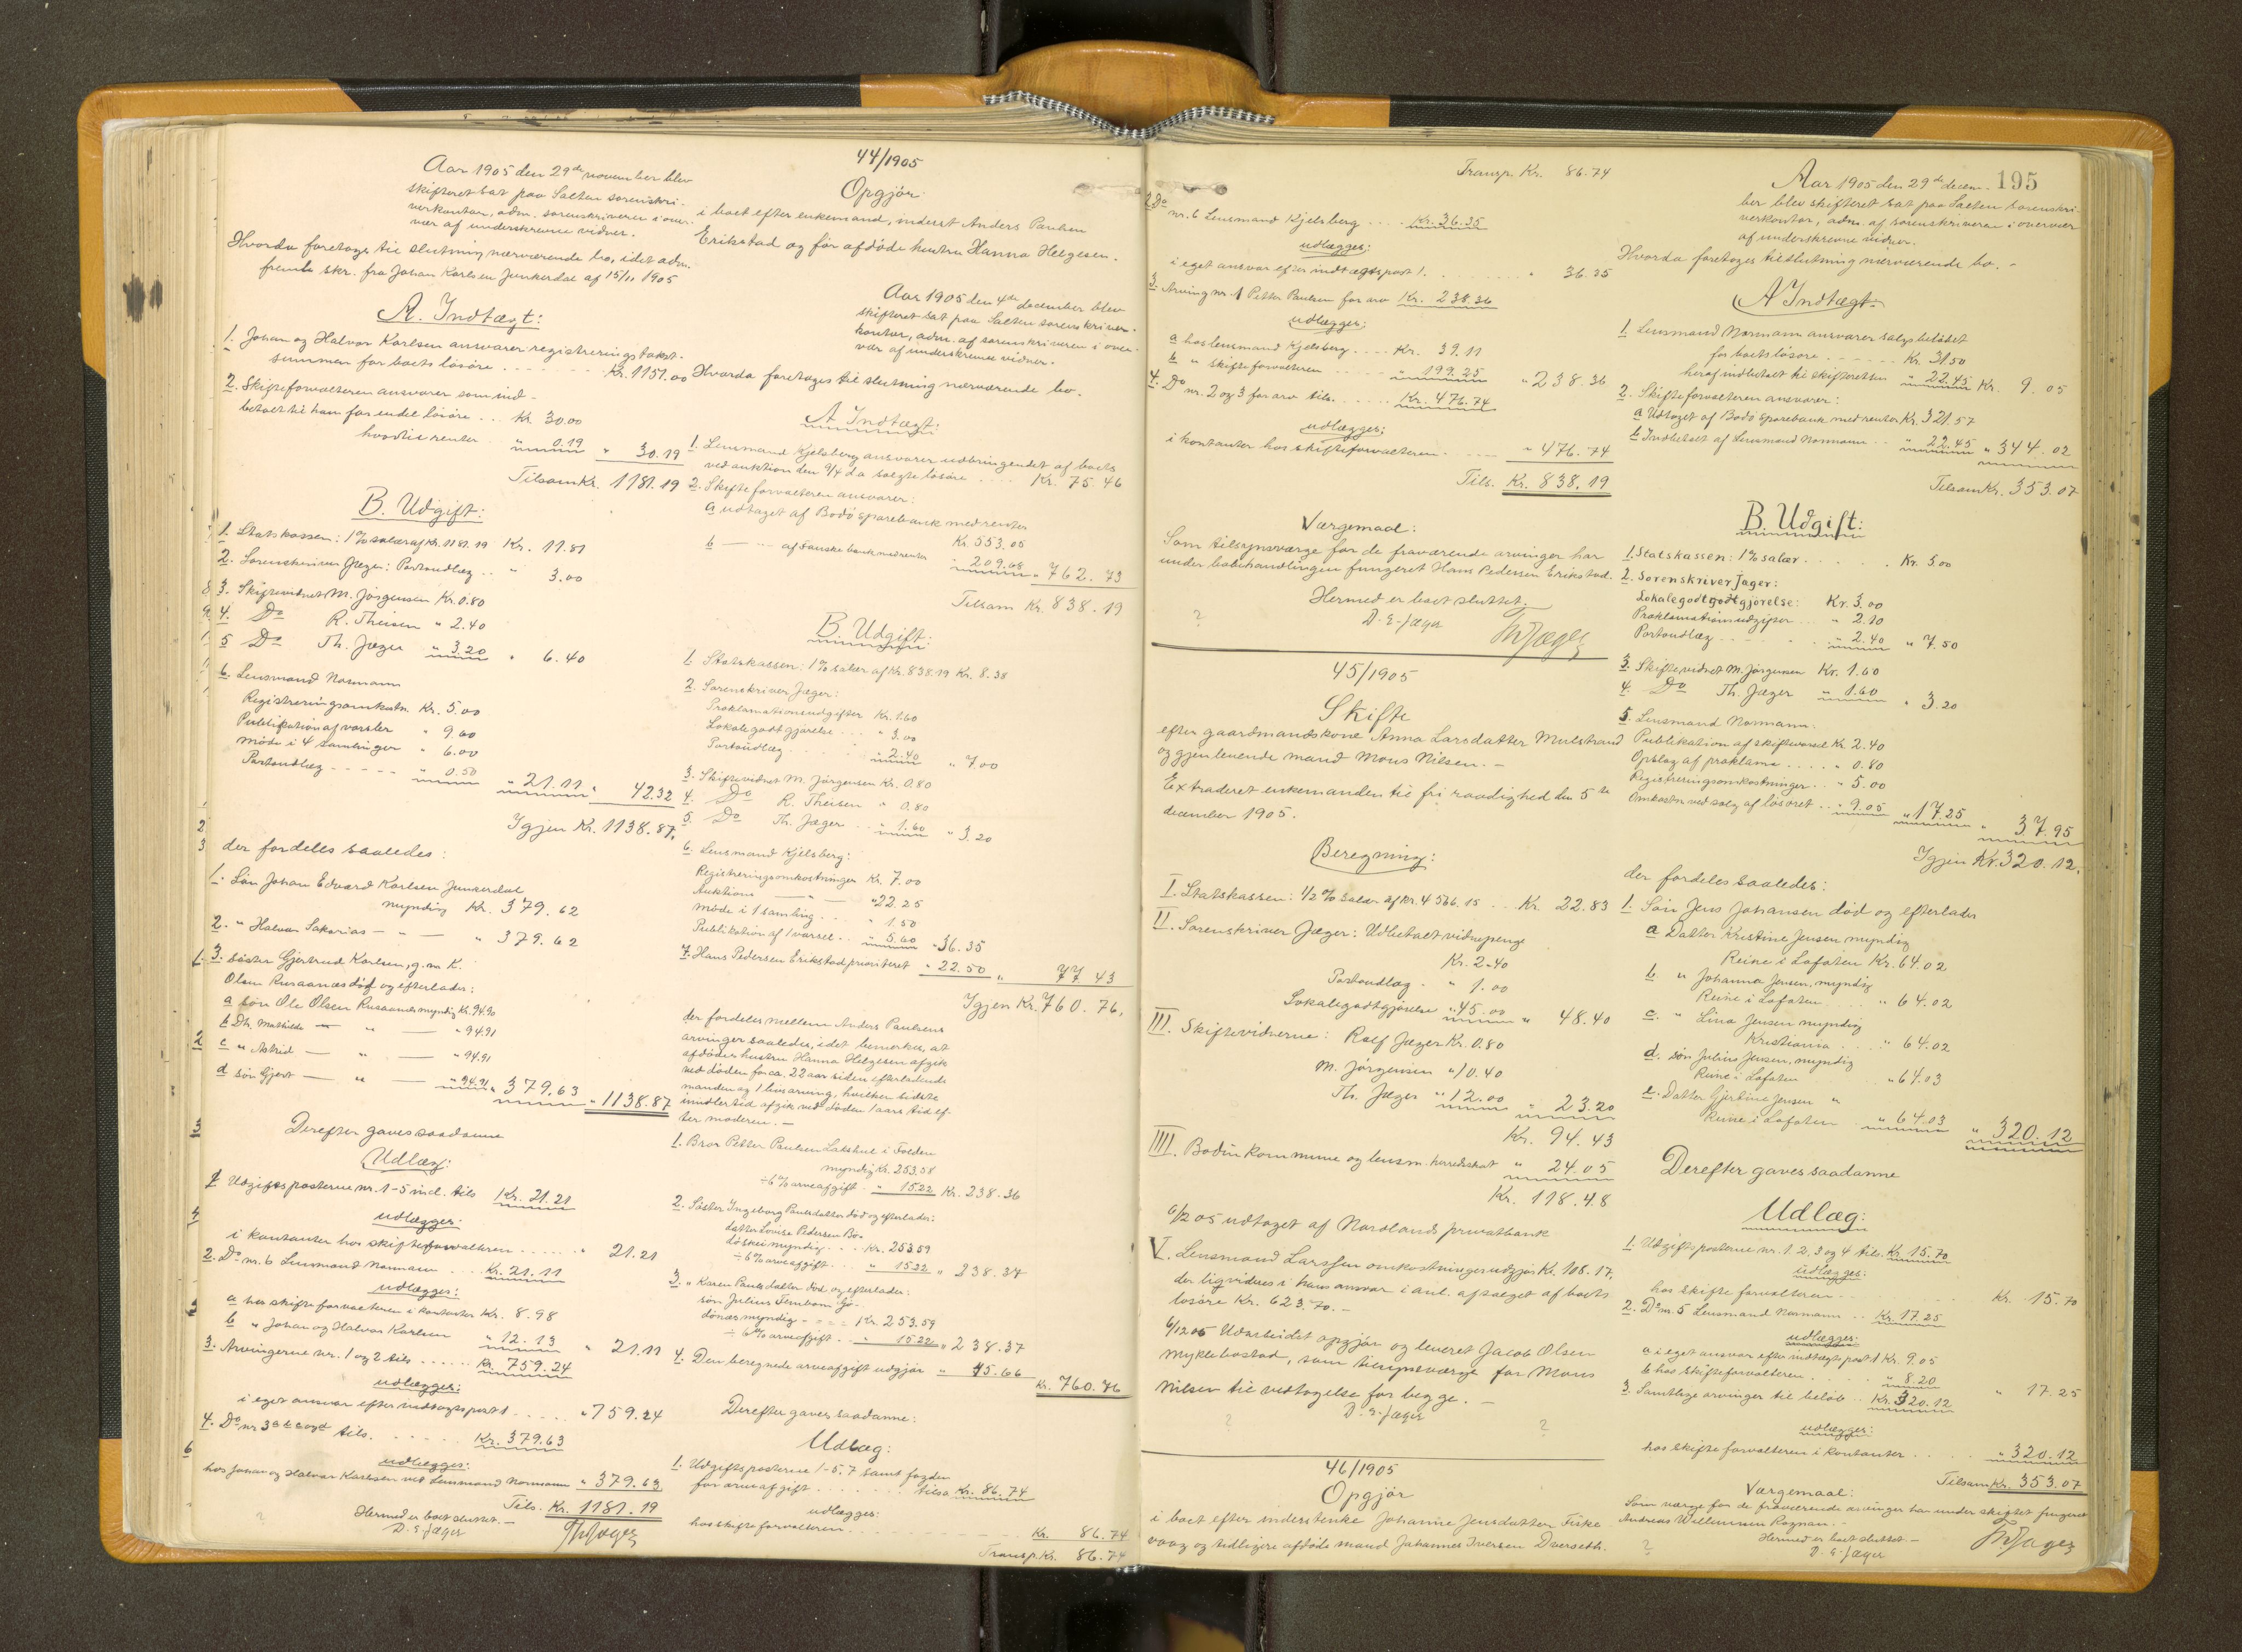 Aar 1905 den 29de november blev
skifteret sat paa Salten sorenskri-
verkontor, adm. sorenskriveren i over-
vær af underskrevne vidner.
Hvorda foretoges til slutning nærværende bo, idet adm.
fremla skr. fra Johan Karlsen Junkerdal af 15/11 1905
A. Indtægt:
1. Johan og Halvor Karlsen ansvarer registreringstakst-
summen for boets løsøre . . . . . . Kr. 1151.00
2. Skifteforvalteren ansvarer som ind-
betalt til ham for endel løsøre . . Kr. 30.00
hvortil renter . . " 0.19 " 30.19
Tilsam Kr. 1181.19
B. Udgift:
1. Statskassen: 1% salær af Kr. 1181.19 Kr. 11.81
2. Sorenskriver Jæger: Portoudlæg . . " 3.00
3. Skiftevidnet M. Jørgensen Kr. 0.80
4. Do R. Theisen " 2.40
5 Do Th. Jæger " 3.20 " 6.40
6. Lensmand Normann
Registreringsomkostn. Kr. 5.00
Publikation af varsler " 9.60
Møde i 4 samlinger " 6.00
Portoudlæg - - - - - " 0.50 " 21.11 " 42.32
Igjen Kr. 1138.87,
der fordeles saaledes:
1. Søn Johan Edvard Karlsen Junkerdal
myndig Kr. 379.62
2. " Halvor Sakarias — " — " 379.62
3. Søster Gjertrud Karlsen, g. m. K.
Olsen Rusaanæs død og efterlader:
a søn Ole Olsen Rusaanes myndig Kr. 94.90
b Dtr. Mathilde — " — " 94.91
c " Astrid — " — " 94.91
d søn Gjert — " — " 94.91 " 379.63 " 1138.87
Derefter gaves saadanne
Udlæg:
1 Udgiftsposterne nr. 1-5 incl. tils Kr. 21.21
udlægges:
i kontanter hos skifteforvalteren . . . . . " 21.21
2. Do nr. 6 Lensmand Normann . . . Kr. 21.11
udlægges:
a hos skifteforvalteren i kontanter Kr. 8.98
b " Johan og Halvor Karlsen " 12.13 " 21.11
3. Arvingerne nr. 1 og 2 tils . . . . . Kr. 759.24
udlægges:
i eget ansvar efter indtægtspost 1 . . . . . " 759.24
4. Do nr 3 a b c og d tils. . . . . . Kr. 379.63
udlægges:
hos Johan og Halvor Karlsen ved Lensmand Normann " 379.63
Tils. Kr. 1181.19
Hermed er boet sluttet.—
D. E. Jæger Th Jæger
44/1905
Opgjør
i boet efter enkemand, inderst Anders Paulsen
Erikstad og før afdøde hustru Hanna Helgesen.
Aar 1905 den 4de december blev
skifteret sat paa Salten sorenskriver-
kontor, adm. af sorenskriveren i over-
vær af underskrevne vidner.
Hvorda foretoges til slutning nærværende bo.
A Indtægt:
1. Lensmand Kjelsberg ansvarer udbringendet af boets
ved auktion den 9/4 d a solgte løsøre . . . . Kr. 75.46
2. Skifteforvalteren ansvarer:
a udtaget af Bodø sparebank med renter
Kr. 553.05
b — " — af Fauske bank med renter 209.68 " 762.73
Tilsam Kr. 838.19
B. Udgift:
1. Statskassen: 1% salær af Kr. 838.19 Kr. 8.38
2. Sorenskriver Jæger:
Proklamationsudgifter Kr. 1.60
Lokalegodtgjørelse . . . " 3.00
Portoudlæg . . . . . " 2.40 " 7.00
3. Skiftevidnet M. Jørgensen Kr. 0.80
4. Do R. Theisen " 0.80
5. Do Th. Jæger . . " 1.60 " 3.20
6. Lensmand Kjelsberg:
Registreringsomkostninger Kr. 7.00
Auktions — " — " 22.25
Møde i 1 samling . . . " 1.50
Publikation af 1 varsel . . " 5.60 " 36.35
7. Hans Pedersen Erikstad prioriteret " 22.50 " 77.43
Igjen Kr. 760.76,
der fordeles mellem Anders Paulsens
arvinger saaledes, idet bemerkes, at
afdødes hustru Hanna Helgesen afgik
ved døden for ca. 22 aar siden efterladende
manden og 1 livsarving, hvilken sidste
imidlertid afgik ved døden 1 aars tid ef-
ter moderen. —
1. Bror Petter Paulsen Lakshul i Folden
myndig Kr. 253.58
÷ 6% arveafgift . . " 15.22 Kr. 238.36
2. Søster Ingeborg Paulsdatter død og efterlader:
datter Lovise Pedersen Bo-
døskei myndig . . . Kr. 253.59
÷ 6% arveafgift . . . " 15.22 " 238.37
3. " Karen Paulsdatter død og efterlader:
søn Julius Tembom Gi-
dønæs myndig - - - Kr. 253.59
÷ 6% arveafgift . . " 15.22 " 238.37
4. Den beregnede arveafgift udgjør " 45.66
Kr. 760.76
Derefter gaves saadanne:
Udlæg:
1. Udgiftsposterne 1-5, 7 samt fogden
for arveafgift . . . . . . . tilsa Kr. 86.74
udlægges:
hos skifteforvalteren . . . . . . . . . Kr. 86.74
Transp. Kr. 86.74
Transp. Kr. 86.74
2 Do nr. 6 Lensmand Kjelsberg . . . . Kr. 36.35
udlægges:
i eget ansvar efter indtægtspost 1. . . . . . . " 36.35
3. Arving nr. 1 Petter Paulsen for arv Kr. 238.36
udlægges:
a hos lensmand Kjelsberg . . . . Kr. 39.11
b " skifteforvalteren . . . . . " 199.25 " 238.36
4. Do nr. 2 og 3 for arv tils. . . . . . Kr. 476.74
udlægges:
i kontanter hos skifteforvalteren. . . . . " 476.74
Tils. Kr. 838.19
Værgemaal:
Som tilsynsværge for de fraværende arvinger har
under bobehandlingen fungeret Hans Pedersen Erikstad.
Hermed er boet sluttet.
D. E. Jæger Th Jæger
45/1905
Skifte
efter gaardmandskone Anna Larsdatter Mulstrand
og gjenlevende mand Mons Nilsen. —
Extraderet enkemanden til fri raadighed den 5te
december 1905.
Beregning:
I. Statskassen: 1/2 % salær af Kr. 4566.15 . . Kr. 22.83
II. Sorenskriver Jæger: Udbetalt vidnepenge
Kr. 2.40
Portoudlæg . " 1.00
Lokalegodtgjørelse " 45.00 " 48.40
III. Skiftevidnerne: Rolf Jæger Kr. 0.80
M. Jørgensen " 10.40
Th. Jæger " 12.00 " 23.20
Kr. 94.43
IIII. Bodin kommune og lensm. herredsskat " 24.05
Kr. 118.48
6/12 05 udtaget af Nordlands privatbank
V. Lensmand Larssen omkostninger udgjør Kr. 108.17,
der ligvideres i hans ansvar i anl. afsalget af boets
løsøre Kr. 623.70. —
6/12 05 Udarbeidet opgjør og leveret Jacob Olsen
Myklebostad, som tilsynsværge for Mons
Nilsen til vedtagelse for begge. —
D. E. Jæger
46/1905
Opgjør
i boet efter inderstenke Johanne Jensdatter Fiske-
vaag og tidligere afdøde mand Johannes Iversen Dverseth.
195
Aar 1905 den 29de decem-
ber blev skifteret sat paa Salten sorenskri-
verkontor, adm. af sorenskriveren i overvær
af underskrevne vidner.
Hvorda foretoges til slutning nærværende bo. —
A Indtægt.
1. Lensmand Normann ansvarer salgsbeløbet
for boets løsøre - - - - - - Kr. 31.50
heraf indbetalt til skifteretten " 22.45 Kr. 9.05
2. Skifteforvalteren ansvarer:
a Udtaget af Bodø sparebank med renter Kr. 321.57
b Indbetalt af Lensmand Normann . . " 22.45 " 344.02
Tilsam Kr. 353.07
B. Udgift:
1. Statskassen: 1% salær . . . . . . Kr. 5.00
2. Sorenskriver Jæger:
Lokalegodtgodtgjørelse: Kr. 3.00
Proklamationsudgifter . . " 2.10
Portoudlæg - - - . . " 2.40 " 7.50
3. Skiftevidnet M. Jørgensen Kr. 1.60
4. Do Th. Jæger " 1.60 " 3.20
5. Lensmand Normann:
Publikation af skiftevarsel Kr. 2.40
Opslag af proklama . . . . " 0.80
Registreringsomkostninger . . " 5.00
Omkostn. ved salg af løsøret . . " 9.05 " 17.25 " 37.95
Igjen Kr. 320.12.
der fordeles saaledes:
1. Søn Jens Johansen død og efterlader
a Datter Kristine Jensen myndig
Reine i Lofoten Kr. 64.02
b " Johanna Jensen, myndig
Reine i Lofoten . . . " 64.02
c. " Lina Jensen myndig
Kristiania . . . " 64.02
d. søn Julius Jensen, myndig
Reine i Lofoten " 64.03
e. Datter Gjertine Jensen "
Reine i Lofoten . " 64.03 " 320.12
Derefter gaves saadanne
Udlæg:
1. Udgiftsposterne nr. 1. 2, 3 og 4 tils. Kr. 15.70
udlægges:
hos skifteforvalteren . . . . . Kr. 15.70
2. Do nr. 5 Lensmand Normann . . Kr. 17.25
udlægges:
a i eget ansvar efter indtægts post 1 Kr. 9.05
b hos skifteforvalteren . . . . . " 8.20 " 17.25
3. Samtlige arvinger til beløb . . Kr. 320.12
udlægges:
hos skifteforvalteren i kontanter . . . . " 320.12
Tilsam Kr. 353.07
Værgemaal:
Som værge for de fraværende arvinger har under skiftet fungeret
Andreas Willumsen Rognan. —
Hermed er boet sluttet —
D. E. Jæger Th Jæger